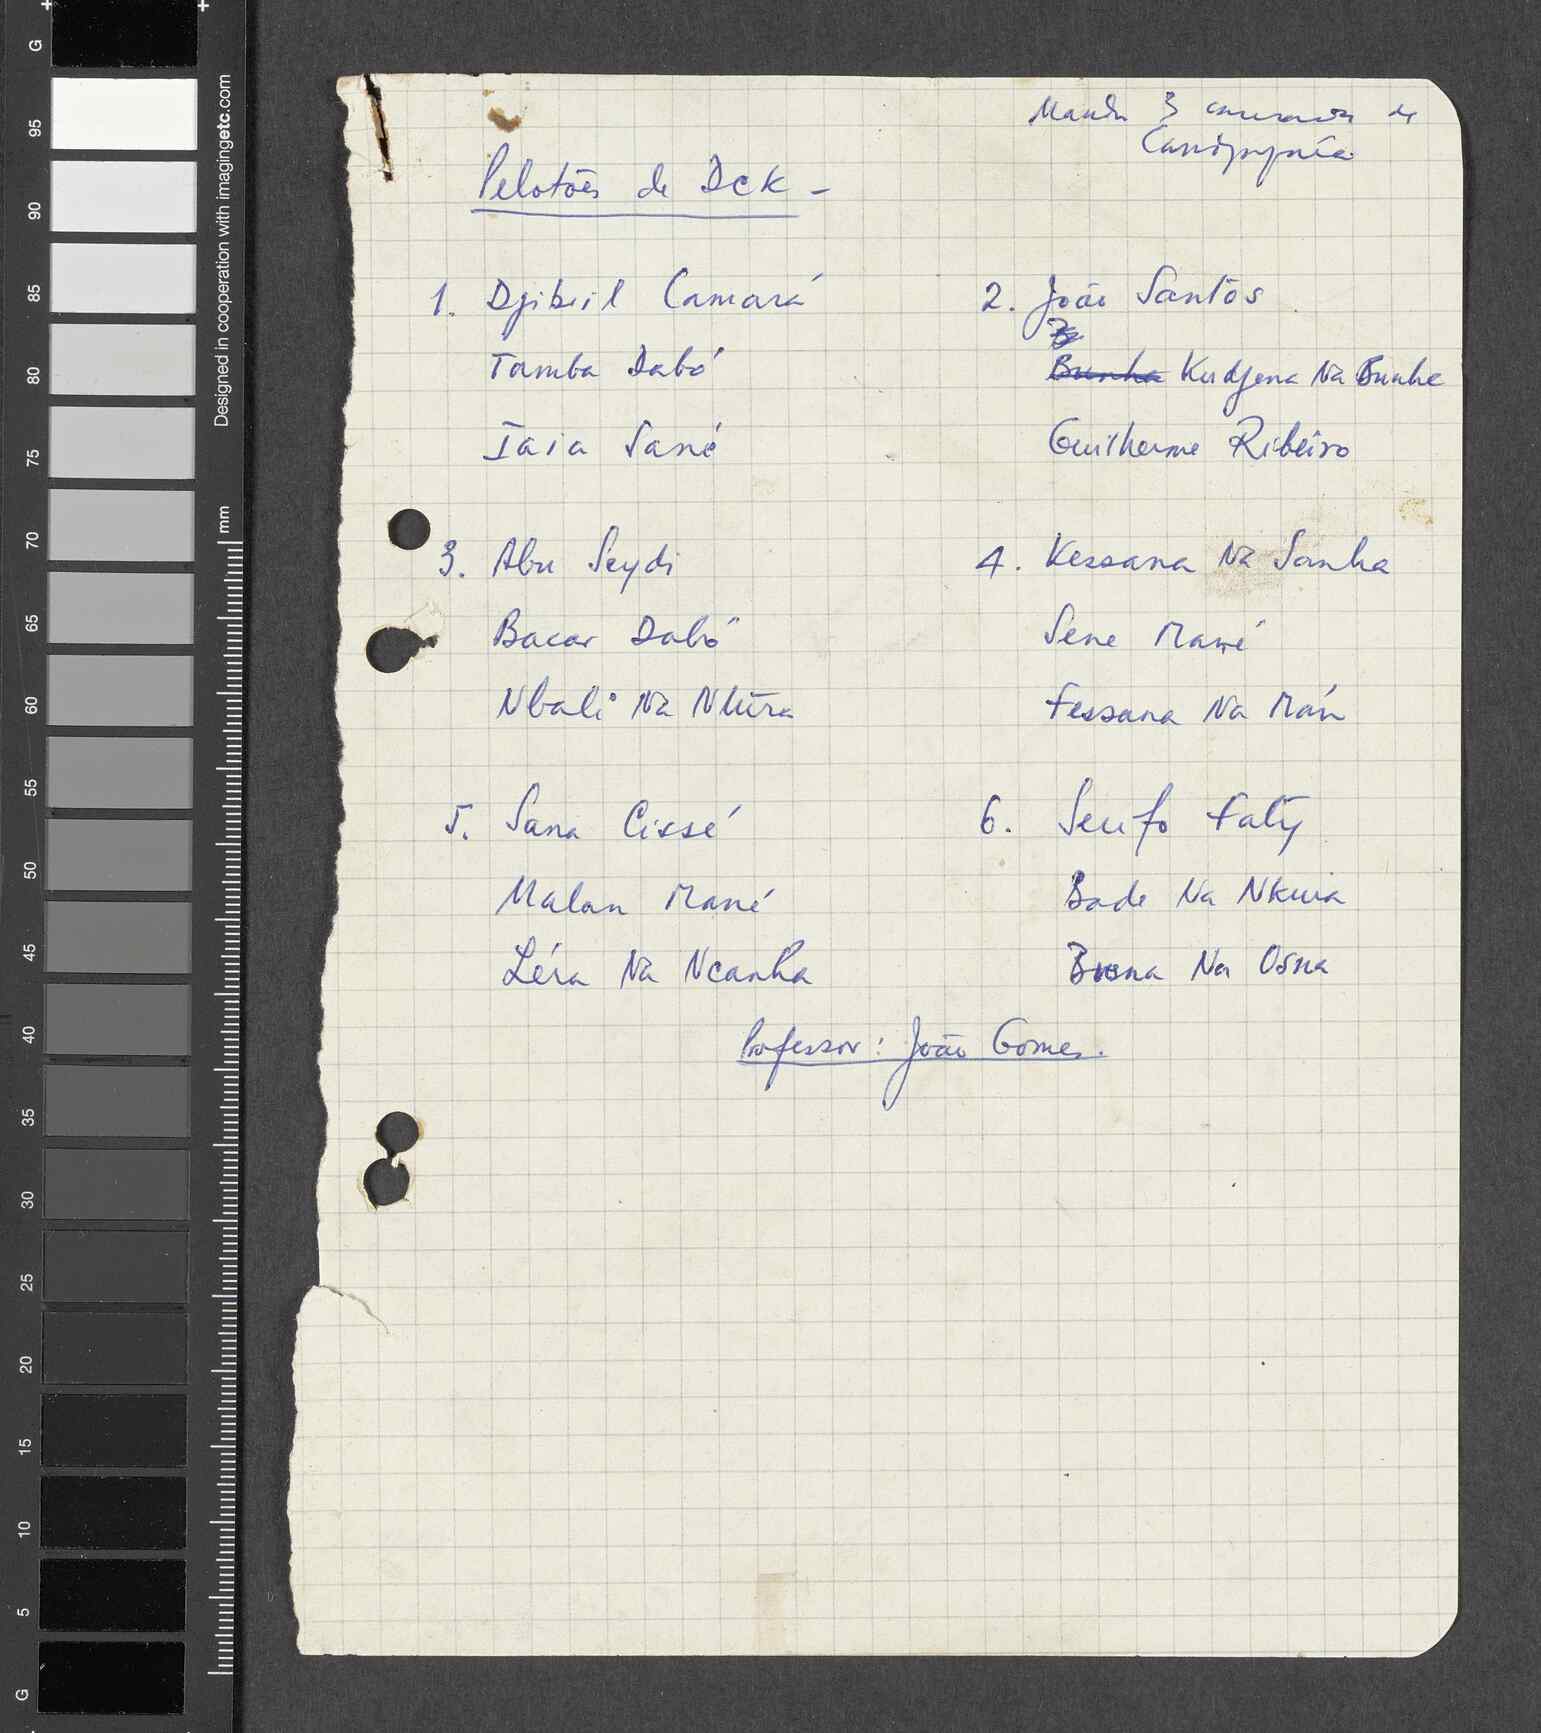 Manda 3 camaradas de
Pelotões de DCK -
1. Djibril Camará
Tamba Dabó
Iaia Sané
2. João Santos
Bunha Kudjena Na Bunhe
Guilherme Ribeiro
3. Abu Seydi
Bacar Dabó
Nbali Na
4. Kessana Na Sanha
Sene Mané
Fessana Na Mán
5. Sana Cissé
Malan Mané
Léra Na Ncanha
6. Serifo Faty
Bade Na Nkuia
Na Osna
Professor: João Gomes.
Designed in cooperation with imagingetc.com
mm
G
95
90
85
80
75
70
65
60
55
50
45
40
35
30
25
20
15
10
5
G